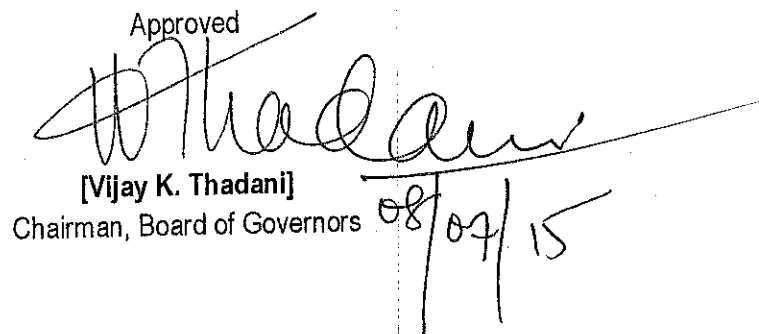 Approved
VThadani
[Vijay K. Thadani]
Chairman, Board of Governors
08/07/15